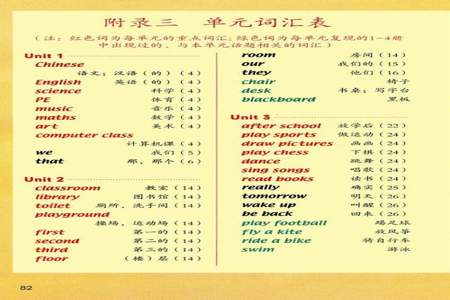 附录三 单元词汇表
(注：红色词为每单元的重点词汇；绿色词为每单元复现的1-4册
中出现过的、与本单元话题相关的词汇)
Unit 1
Chinese
语文；汉语（的）(4)
English 英语（的）(4)
science 科学 (4)
PE 体育 (4)
music 音乐 (4)
maths 数学 (4)
art 美术 (4)
computer class
计算机课 (4)
we 我们 (5)
that 那，那个 (6)
Unit 2
classroom 教室 (14)
library 图书馆 (14)
toilet 厕所，洗手间 (14)
playground
操场，运动场 (14)
first 第一的 (14)
second 第二的 (14)
third 第三的 (14)
floor （楼）层 (14)
room 房间 (14)
our 我们的 (15)
they 他们 (16)
chair 椅子
desk 书桌；写字台
blackboard 黑板
Unit 3
after school 放学后 (22)
play sports 做运动 (24)
draw pictures 画画 (24)
play chess 下棋 (24)
dance 跳舞 (24)
sing songs 唱歌 (24)
read books 读书 (24)
really 确实 (25)
tomorrow 明天 (26)
wake up 叫醒 (26)
be back 回来 (26)
play football 踢足球
fly a kite 放风筝
ride a bike 骑自行车
swim 游泳
82